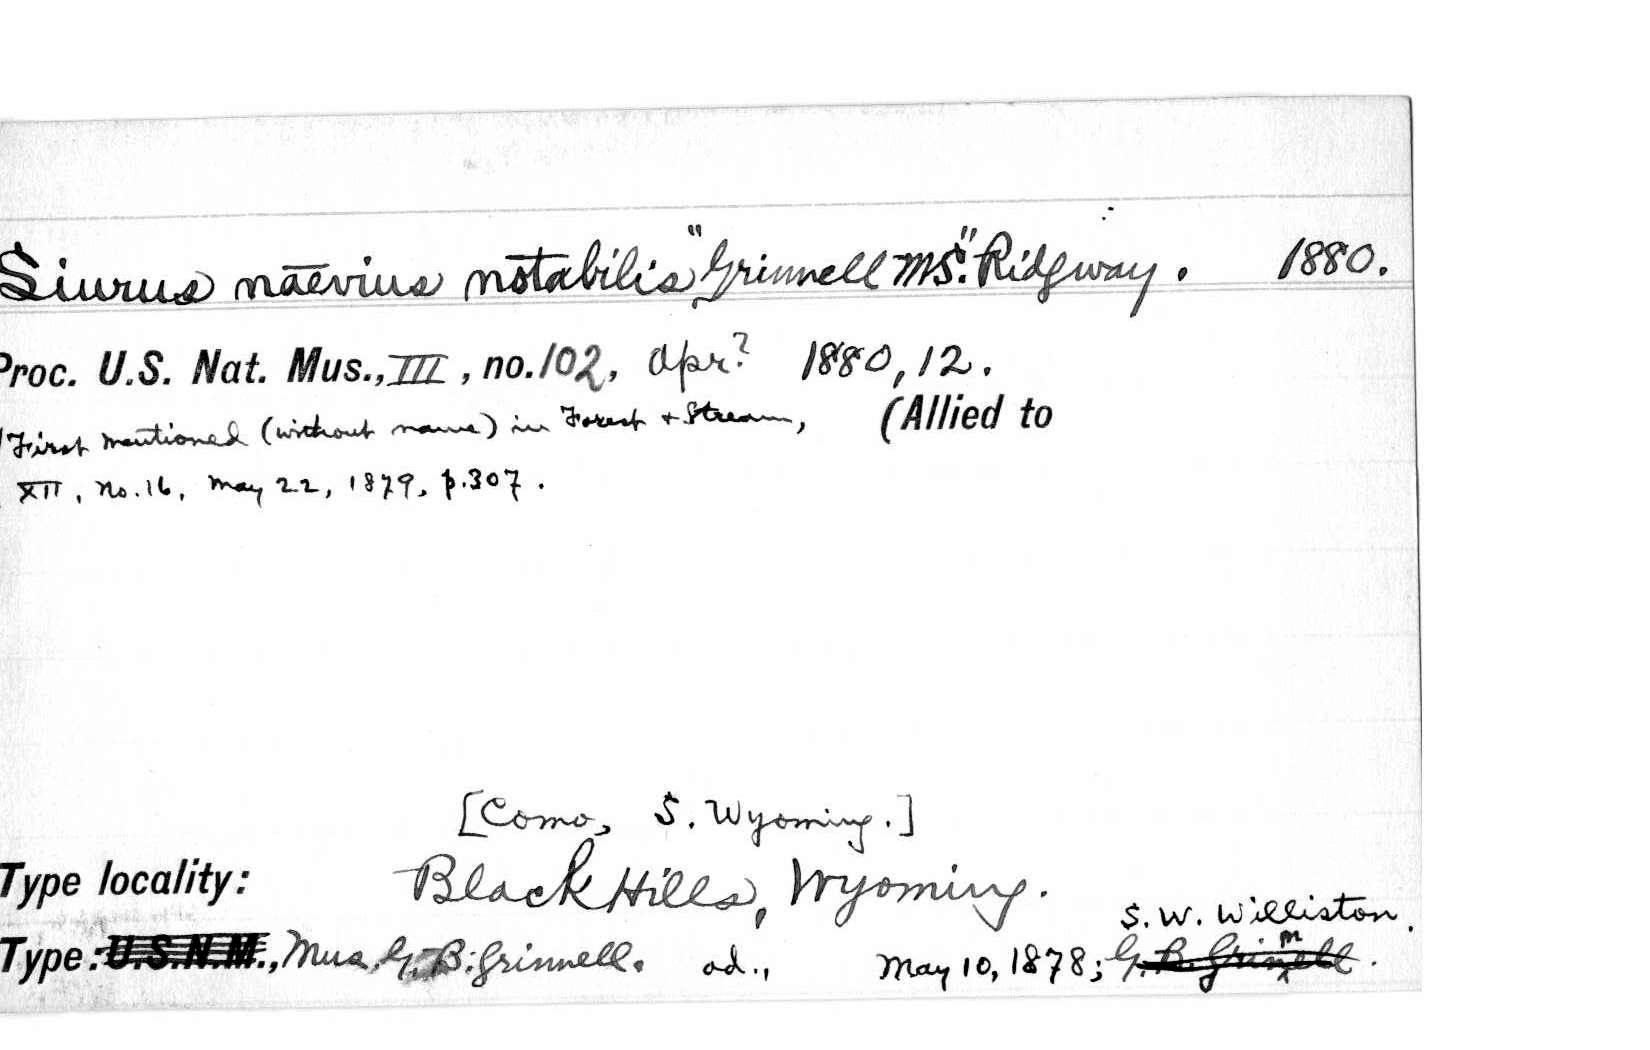 Siurus naevius notabilis "Grinnell MS." Ridgway. 1880.
Proc. U.S. Nat. Mus., III, no. 102, Apr? 1880, 12.
First mentioned (without name) in Forest + Stream, (Allied to
XII, no. 16, May 22, 1879, p. 307.
[Como, S. Wyoming.]
Type locality: Black Hills, Wyoming.
S. W. Williston.
Type: U.S.N.M., Mus. G. B. Grinnell. ad., May 10, 1878; G. B. Grinnell.